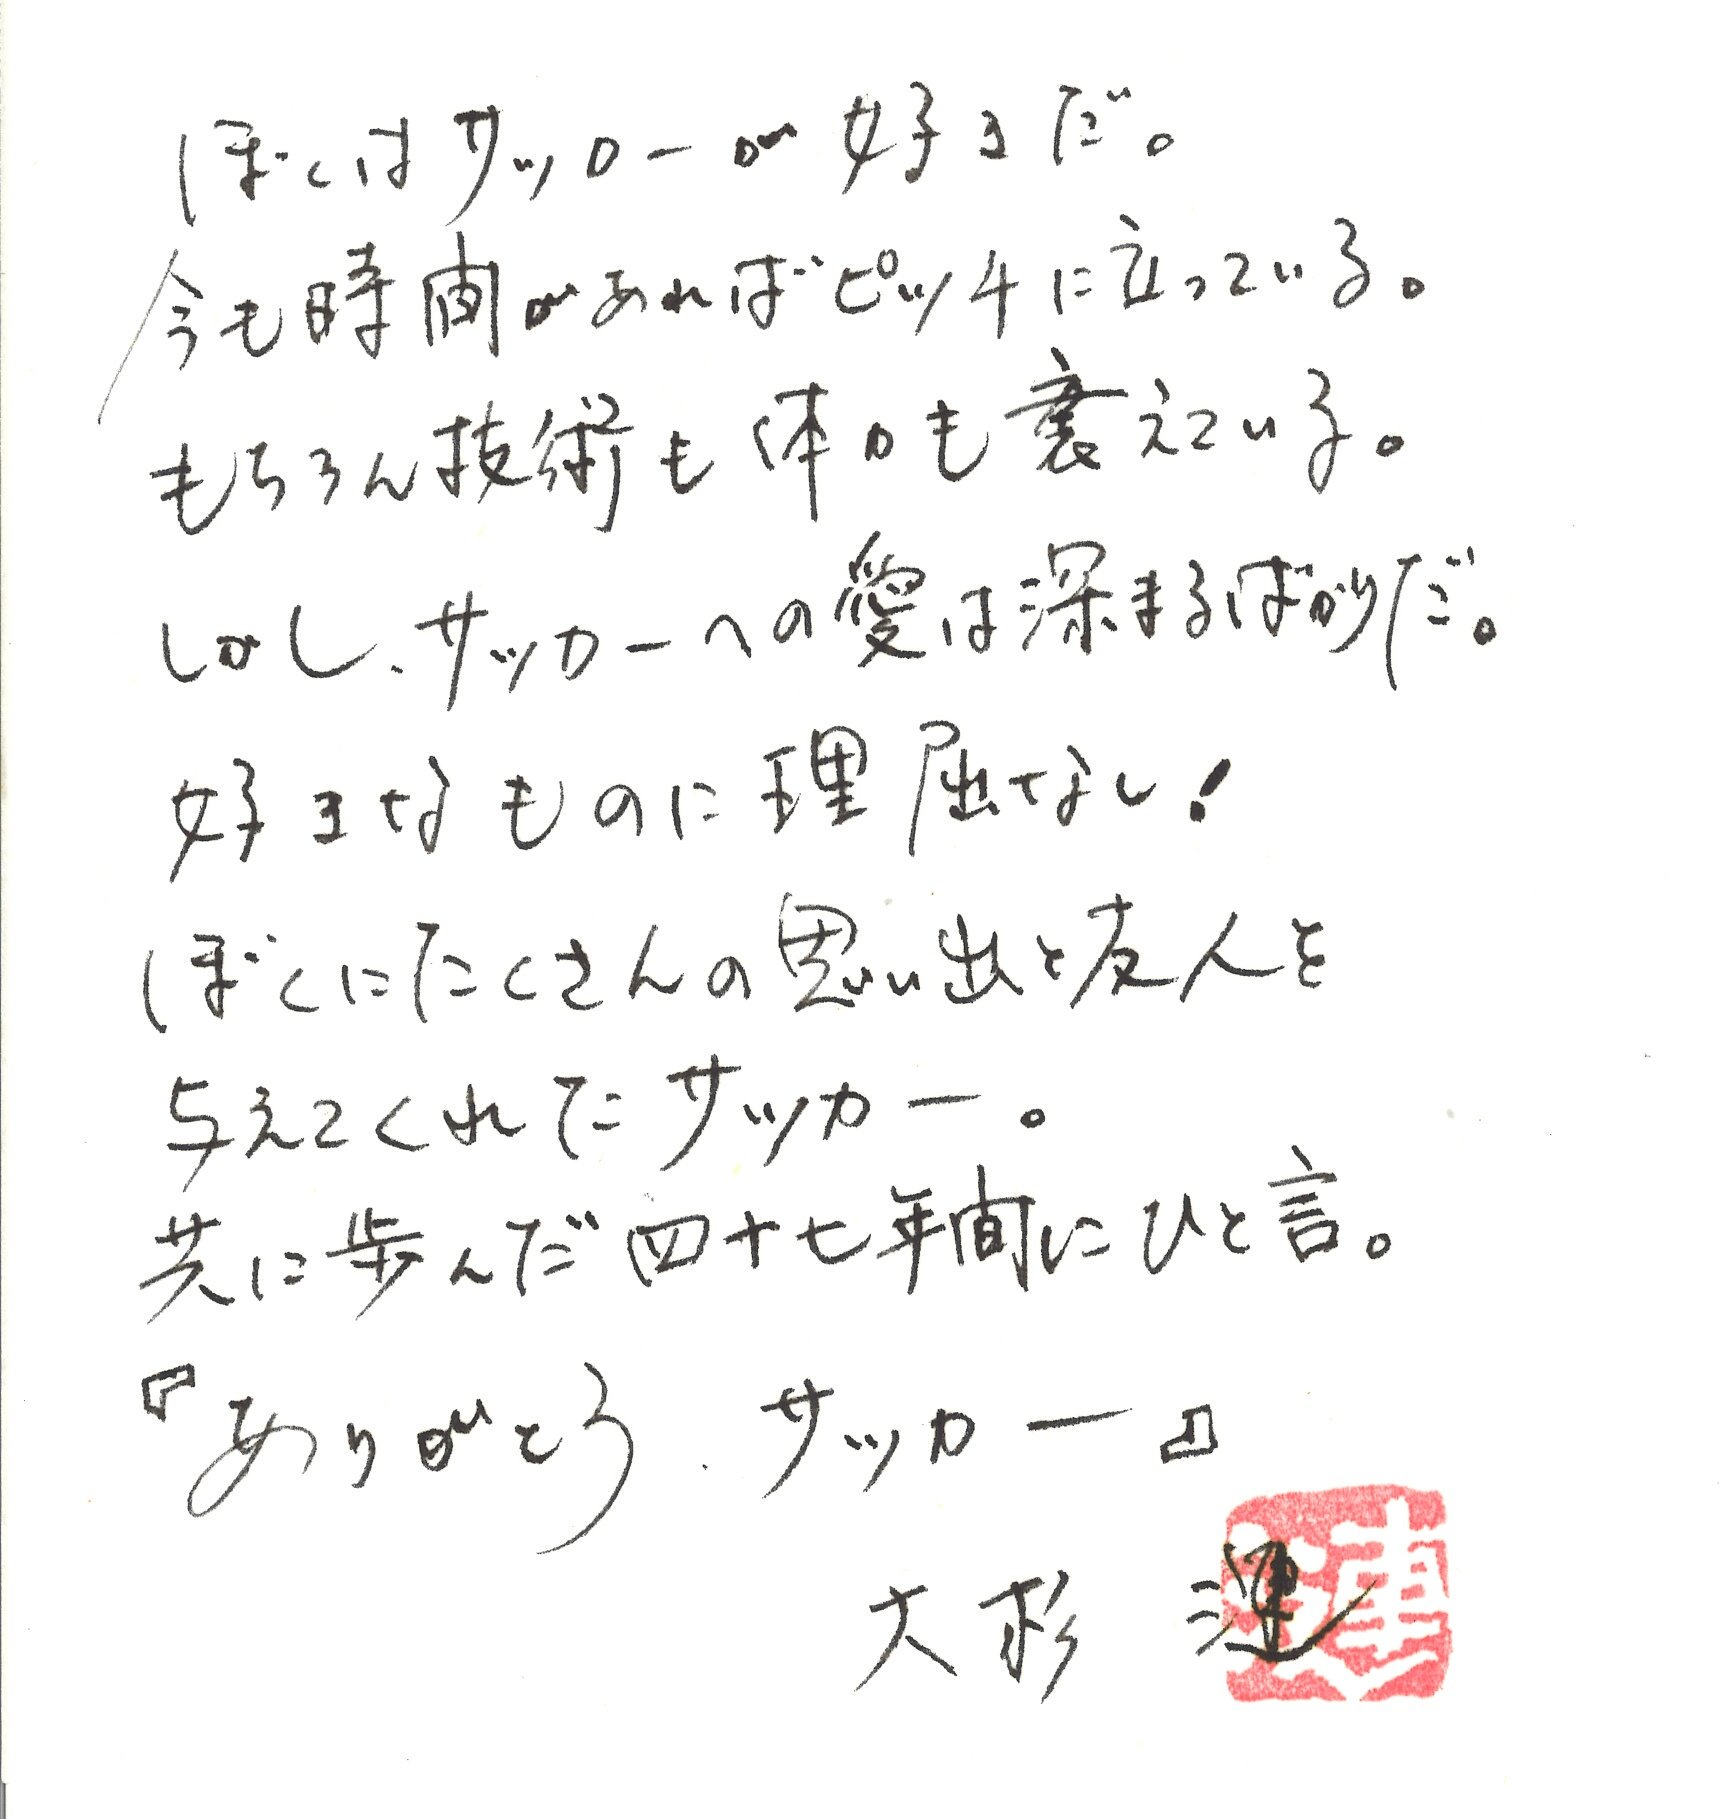 ぼくはサッカーが好きだ。
今も時間があればピッチに立っている。
もちろん技術も体力も衰えている。
しかし、サッカーへの愛は深まるばかりだ。
好きなものに理屈なし!
ぼくにたくさんの思い出と友人を
与えてくれたサッカー。
共に歩んだ四十七年間にひと言。
『ありがとう、サッカー』
大杉 漣
漣